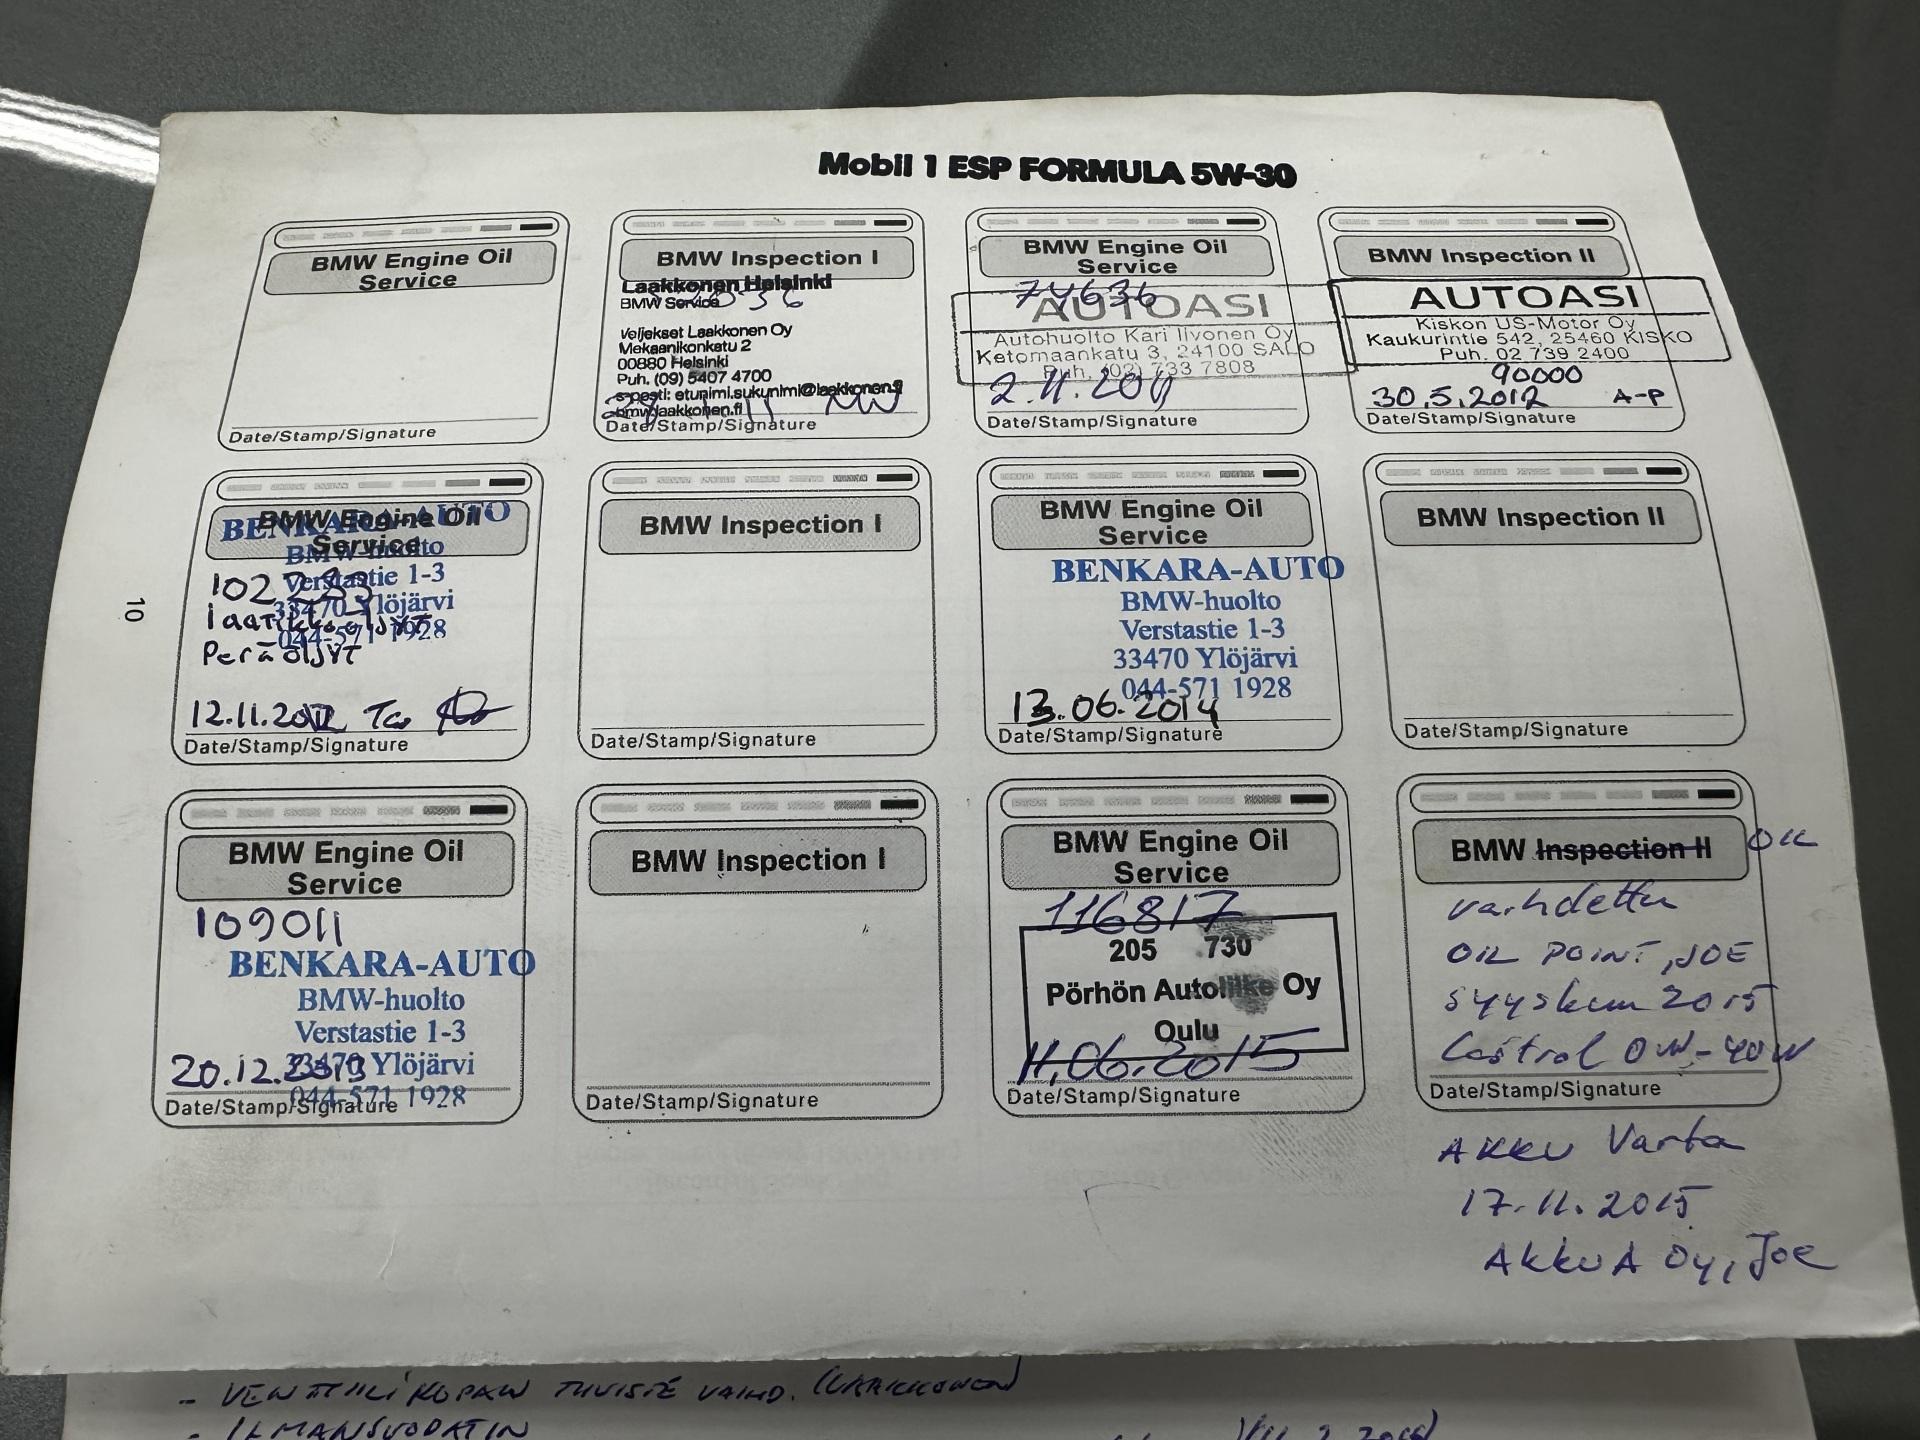 Mobil 1 ESP FORMULA 5W-30
BMW Engine Oil
Service
Date/Stamp/Signature
BMW Inspection I
Laakkonen Helsinki
BMW Service
Veljekset Laakkonen Oy
Mekaanikonkatu 2
00880 Helsinki
Puh. (09) 5407 4700
s-posti: etunimi.sukunimi@laakkonen.fi
bmw.laakkonen.fi
Date/Stamp/Signature
BMW Engine Oil
Service
74636
AUTOASI
Autohuolto Kari Ilvonen Oy
Ketomaankatu 3, 24100 SALO
Puh. (02) 733 7808
2.11.2011
Date/Stamp/Signature
BMW Inspection II
AUTOASI
Kiskon US-Motor Oy
Kaukurintie 542, 25460 KISKO
Puh. 02 739 2400
90000
30.5.2012 A-P
Date/Stamp/Signature
10
BMW Engine Oil
Service
BENKARA-AUTO
BMW-huolto
Verstastie 1-3
33470 Ylöjärvi
044-571 1928
102283
Laatikkoöljyt
Peräöljyt
12.11.2012
Date/Stamp/Signature
BMW Inspection I
Date/Stamp/Signature
BMW Engine Oil
Service
BENKARA-AUTO
BMW-huolto
Verstastie 1-3
33470 Ylöjärvi
044-571 1928
13.06.2014
Date/Stamp/Signature
BMW Inspection II
Date/Stamp/Signature
BMW Engine Oil
Service
109011
BENKARA-AUTO
BMW-huolto
Verstastie 1-3
33470 Ylöjärvi
044-571 1928
20.12.2013
Date/Stamp/Signature
BMW Inspection I
Date/Stamp/Signature
BMW Engine Oil
Service
116817
205 730
Pörhön Autoliike Oy
Oulu
11.06.2015
Date/Stamp/Signature
BMW Inspection II OIL
vaihdettu
OIL POINT, JOE
syyskuu 2015
Castrol 0W-40W
Date/Stamp/Signature
AKKU Varta
17.11.2015
AKKU A Oy, Joe
- VENTTIILIKOPAN TIIVISTE VAIHD. (LAAKKONEN)
- ILMANSUODATIN